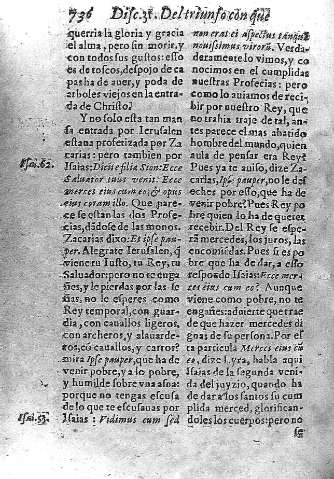 736 Disc. 31. Del triunfo con que
querria la gloria y gracia
el alma, pero sin morir, y
con todos sus gustos: esso
es de toscos, despojo de ca
pa ha de auer, y poda de
arboles viejos en la entra-
da de Christo?
Y no solo esta tan man
sa entrada por Ierusalen
estaua profetizada por Za
carias: pero tambien por
Isai. 62.
Isaias: Dicite filiæ Sion: Ecce
Saluator tuus venit: Ecce
merces eius cum eo, & opus
eius coram illo. Que pare-
ce se estan las dos Profe-
cias, dādose de las monos.
Zacarias dixo: Et ipse pau-
per. Alegrate Ierusalen, q̃
viene tu Iusto, tu Rey, tu
Saluador: pero no te enga
ñes, y le pierdas por las se
ñas, no le esperes como
Rey temporal, con guar-
dia, con cauallos ligeros,
con archeros, y alauarde-
ros, cō cauallos, y carros?
mira Ipse pauper, que ha de
venir pobre, y a lo pobre,
y humilde sobre vna asna:
porque no tengas escusa
de lo que te escusauas por
Isai. 53.
Isaias: Vidimus eum sed
non erat ei aspectus tanquā
nouissimus virorū. Verda-
deramente lo vimos, y co
nocimos en el cumplidas
nuestras Profecias; pero
como lo auiamos de reci-
bir por nuestro Rey, que
no trahia traje de tal, an-
tes parece el mas abatido
hombre del mundo, quien
auia de pensar era Rey?
Pues ya te auiso, dize Za-
carias, Ipse pauper, no le des
eches por esso, que ha de
venir pobre? Pues Rey po
bre quien lo ha de querer
recebir. Del Rey se espe-
rā mercedes, los juros, las
encomiēdas. Pues si es po
bre que ha de dar, a esso
respōde Isaias: Ecce mer-
ces eius cum eo? Aunque
viene como pobre, no te
engañes: aduierte que trae
de que hazer mercedes di
gnas de su persona. Por es
ta particula Merces eius cū
eo, dize Lyra, habla aqui
Isaias de la segunda veni-
da del juyzio, quando ha
de dar a los santos su cum
plida merced, glorifican-
doles los cuerpos: pero no